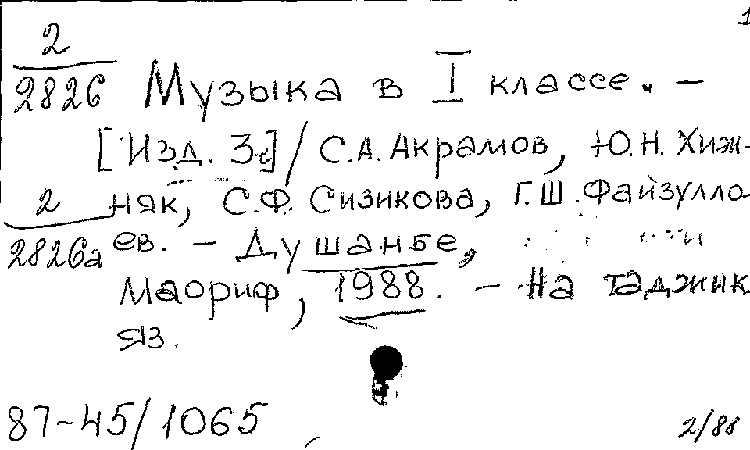 1
2
2826 Музыка в I классе. –
[Изд. 3е] / С.А. Акрамов, Ю.Н. Хиж-
няк, С.Ф. Сизикова, Г.Ш. Файзулло
2
2826а ев. – Душанбе,
Маориф, 1988. – На таджик
яз.
87-45/1065
2/88